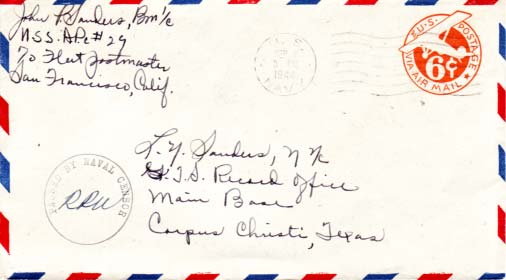 John P. Sanders, BM 1/c
U.S.S. APc #29
c/o Fleet Postmaster
San Francisco, Calif.
U.S. POSTAGE
6¢
VIA AIR MAIL
U.S.
1944
L. Y. Sanders, Y 1/c
G.T.S. Record Office
Main Base
Corpus Christi, Texas
PASSED BY NAVAL CENSOR